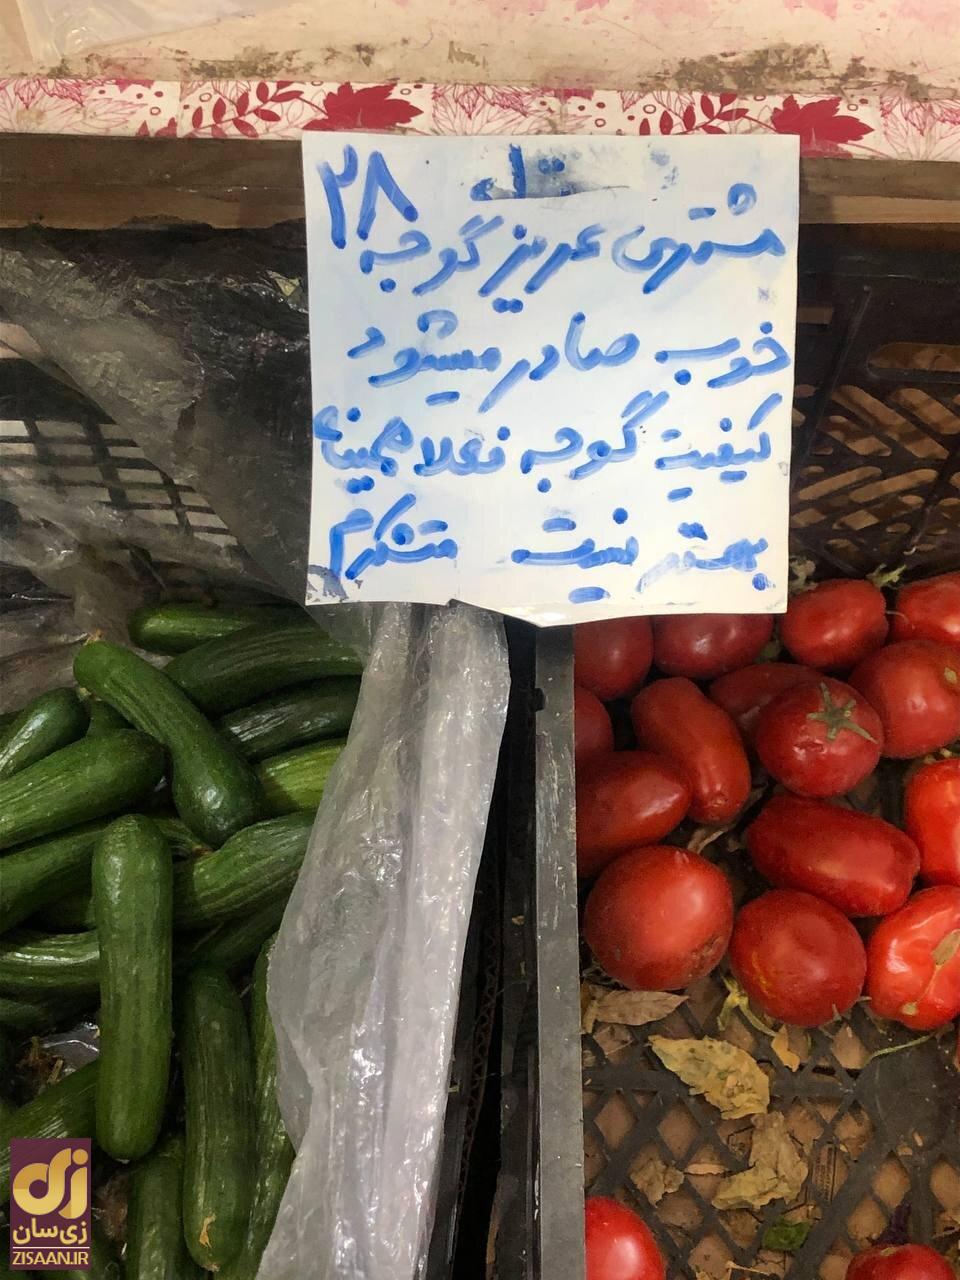 ۲۸
مشتری عزیز گوجه
خوب صادر میشود
کیفیت گوجه فعلا همینه
بهتر نیست متشکرم
زی‌سان
ZISAAN.IR